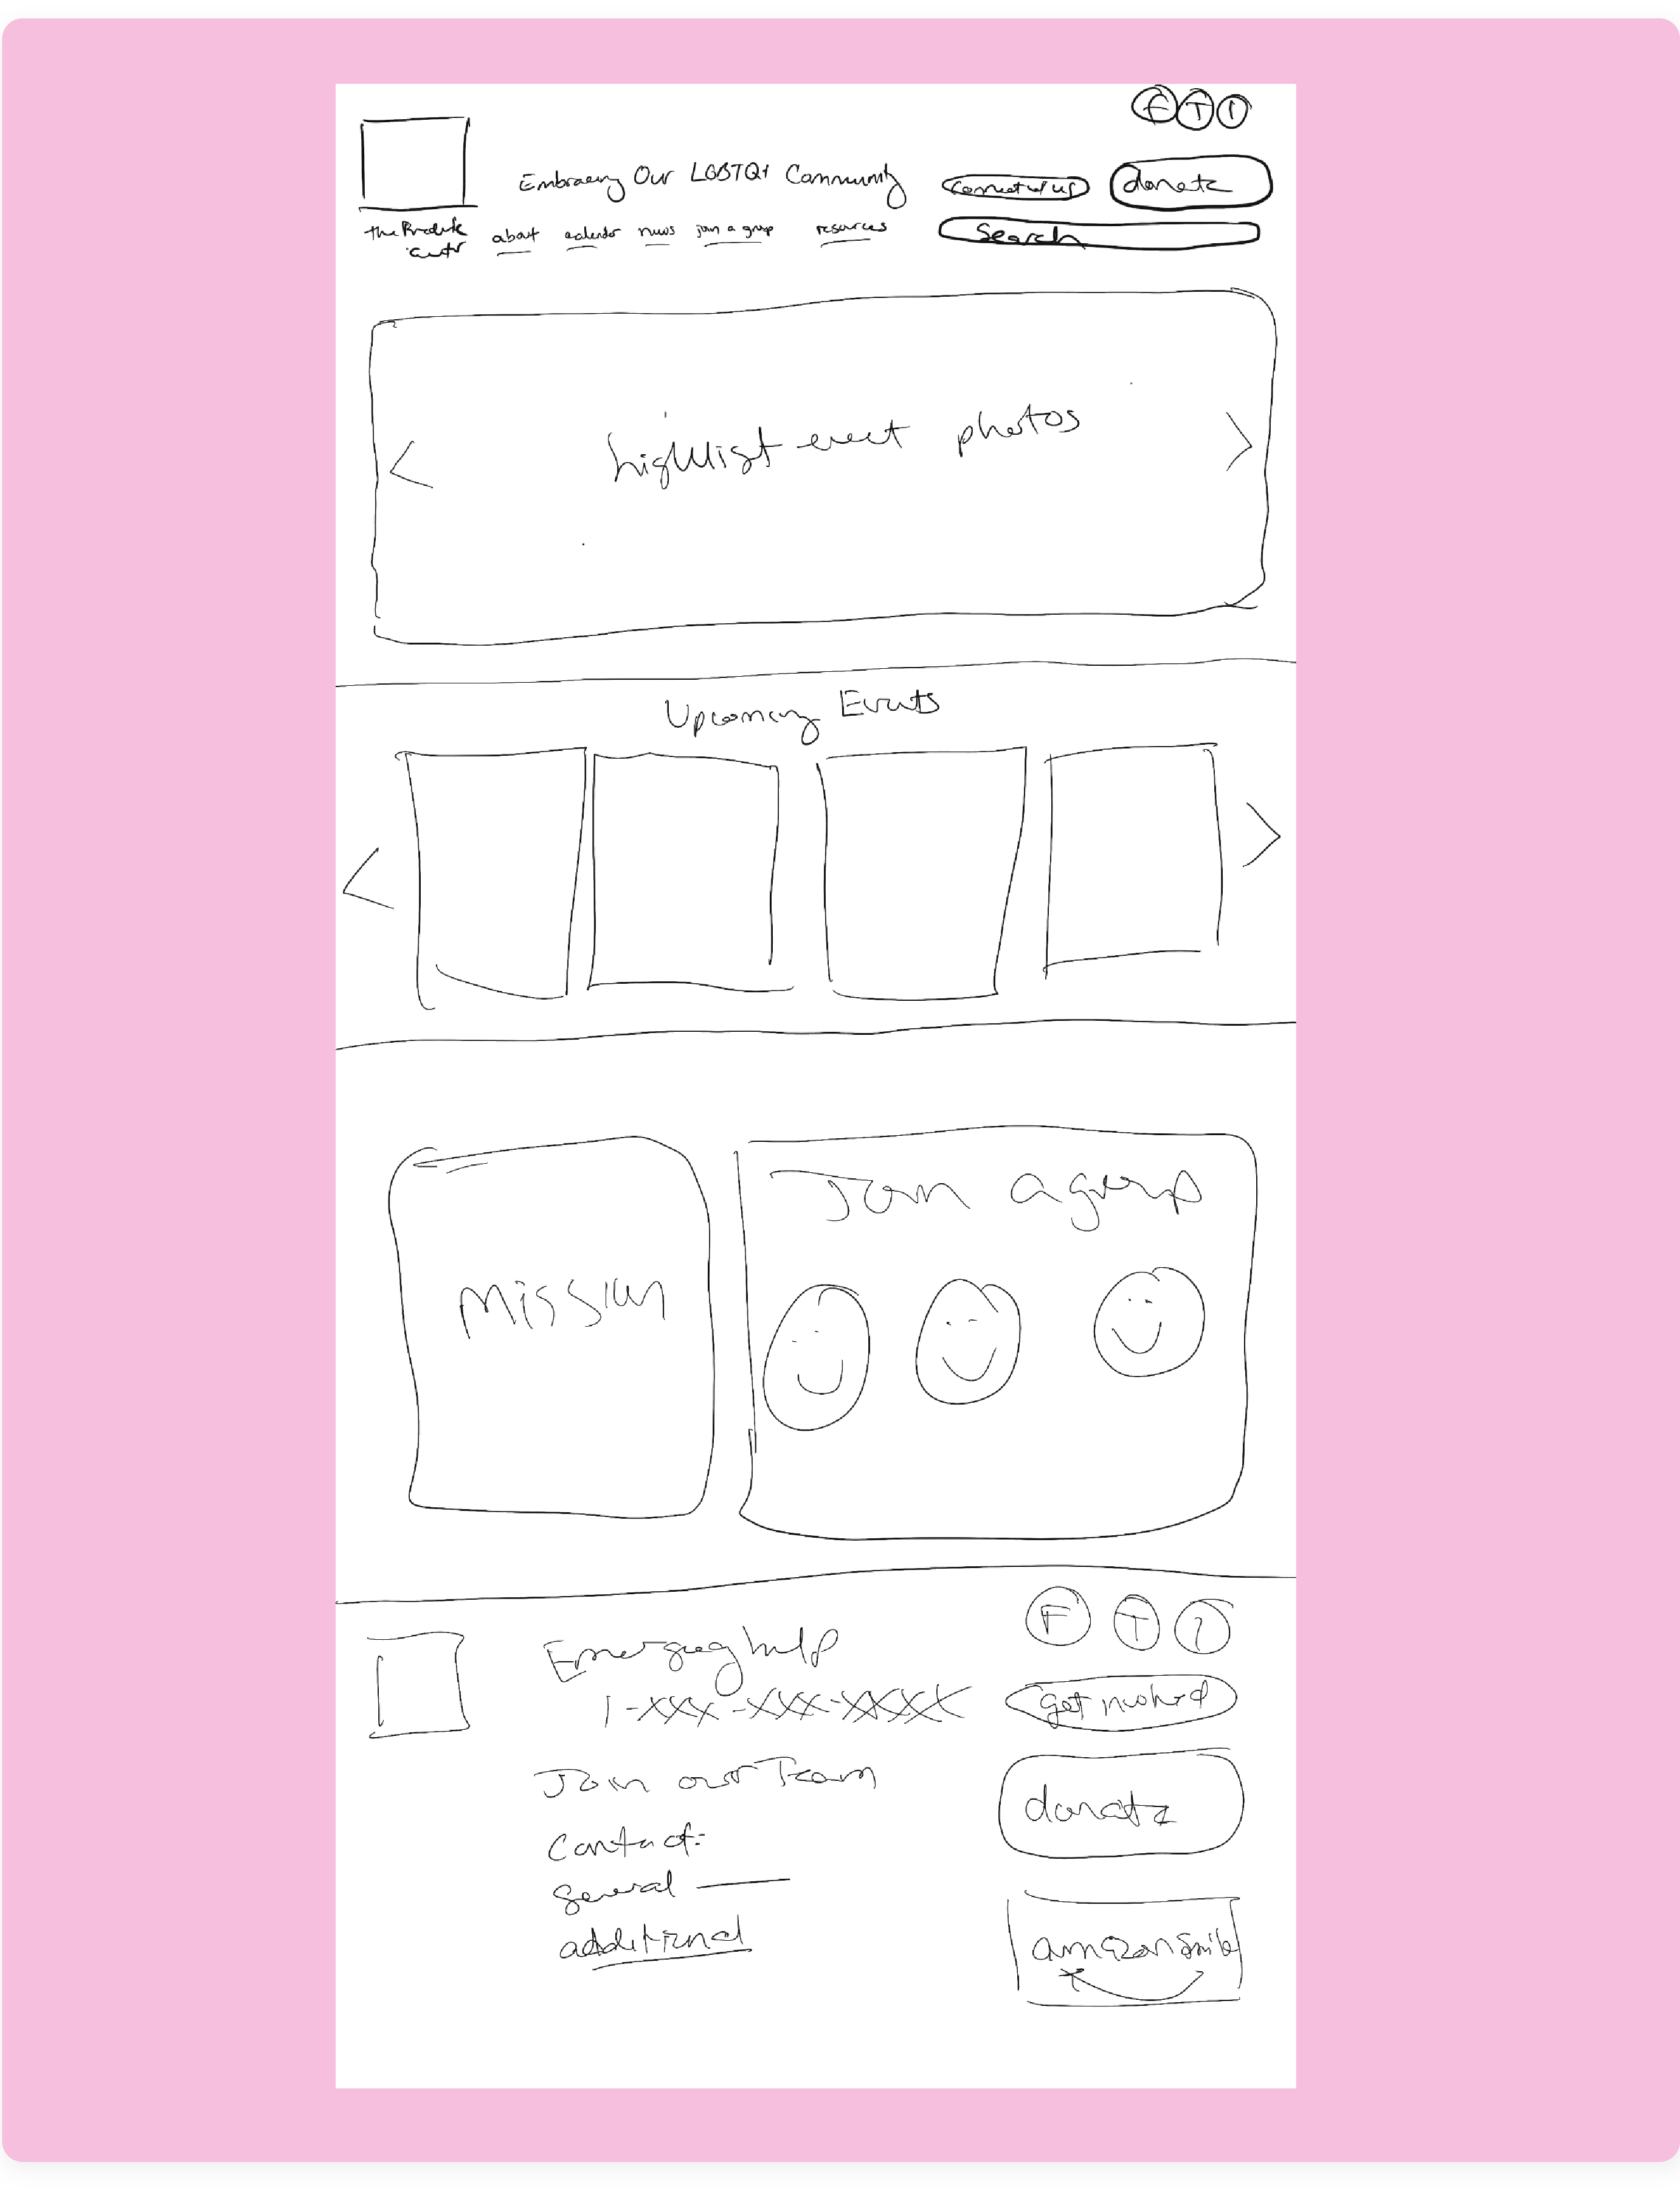 F T I
Embracing Our LGBTQ+ Community
connect w/ us
donate
the
about calender news join a group resources
Search
< highlight event photos >
Upcoming Events
< >
Mission
Join a group
F T I
Emergency help
1-xxx-xxx-xxxx
get involved
Join our Team
donate
Contact:
general
additional
amazon smile